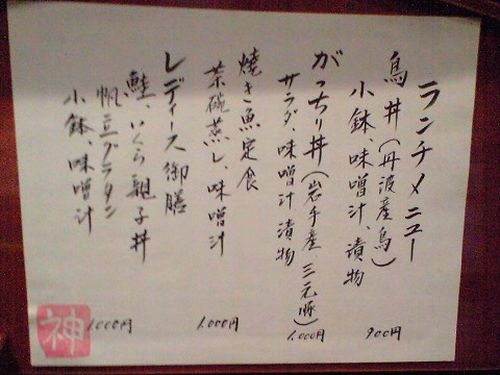 ランチメニュー
鳥丼(丹波産鳥)
小鉢、味噌汁、漬物
900円
がっちり丼(岩手産 三元豚)
サラダ、味噌汁漬物
1.000円
焼き魚定食
茶碗蒸し、味噌汁
1.000円
レディース御膳
鮭、いくら親子丼
帆立グラタン
小鉢、味噌汁
1.000円
神